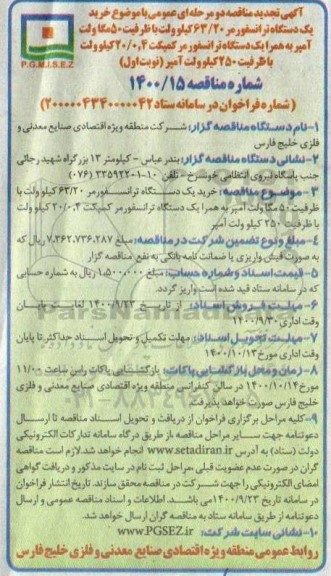 آگهی تجدید مناقصه دو مرحله ای عمومی با موضوع خرید
یک دستگاه ترانسفورمر ۶۳/۲۰ کیلو ولت با ظرفیت ۵۰ مگا ولت
آمپر به همراه یک دستگاه ترانسفورمر کمپکت ۲۰/۰,۴ کیلو ولت
با ظرفیت ۲۵۰ کیلو ولت آمپر (نوبت اول)
P.G.M.I.S.E.Z
شماره مناقصه ۱۴۰۰/۱۵
(شماره فراخوان در سامانه ستاد ۲۰۰۰۰۰۴۳۴۰۰۰۰۰۴۲)
۱-نام دستگاه مناقصه گزار: شرکت منطقه ویژه اقتصادی صنایع معدنی و
فلزی خلیج فارس
۲-نشانی دستگاه مناقصه گزار: بندرعباس - کیلومتر ۱۳ بزرگراه شهید رجائی
جنب پاسگاه نیروی انتظامی خونسرخ - تلفن ۱۰-۳۳۵۹۲۲۰۱ (۰۷۶)
۳-موضوع مناقصه: خرید یک دستگاه ترانسفورمر ۶۳/۲۰ کیلو ولت با
ظرفیت ۵۰ مگا ولت آمپر به همراه یک دستگاه ترانسفورمر کمپکت ۲۰/۰,۴ کیلو ولت
با ظرفیت ۲۵۰ کیلو ولت آمپر
۴-مبلغ و نوع تضمین شرکت در مناقصه: مبلغ ۷,۳۶۲,۷۳۶,۲۸۷ ریال که
به صورت فیش واریزی یا ضمانت نامه بانکی به نفع مناقصه گزار
۵-قیمت اسناد و شماره حساب: مبلغ ۱,۵۰۰,۰۰۰ ریال به شماره حسابی
که در سامانه ستاد قید شده است واریز گردد.
۶-مهلت فروش اسناد: از تاریخ ۱۴۰۰/۹/۲۳ لغایت پایان
وقت اداری ۱۴۰۰/۹/۳۰
۷-مهلت تحویل اسناد: مهلت تکمیل و تحویل اسناد حداکثر تا پایان
وقت اداری مورخ ۱۴۰۰/۱۰/۱۳
۸-زمان و محل بازگشایی پاکات: بازگشایی پاکات راس ساعت ۱۱/۰۰
مورخ ۱۴۰۰/۱۰/۱۴ در سالن کنفرانس منطقه ویژه اقتصادی صنایع معدنی و فلزی
خلیج فارس صورت خواهد پذیرفت.
۹-کلیه مراحل برگزاری فراخوان از دریافت و تحویل اسناد مناقصه تا ارسال
دعوتنامه جهت سایر مراحل مناقصه از طریق درگاه سامانه تدارکات الکترونیکی
دولت (ستاد) به آدرس www.setadiran.ir انجام خواهد شد. لازم است مناقصه
گران در صورت عدم عضویت قبلی، مراحل ثبت نام در سایت مذکور و دریافت گواهی
امضای الکترونیکی را جهت شرکت در مناقصه محقق سازند. تاریخ انتشار فراخوان
در سامانه تاریخ ۱۴۰۰/۹/۲۳ می باشد. اطلاعات و اسناد مناقصه عمومی و ارسال
دعوتنامه از طریق سامانه ستاد به مناقصه گران ارسال خواهد شد.
۱۰-نشانی سایت شرکت: www.PGSEZ.ir
روابط عمومی منطقه ویژه اقتصادی صنایع معدنی و فلزی خلیج فارس